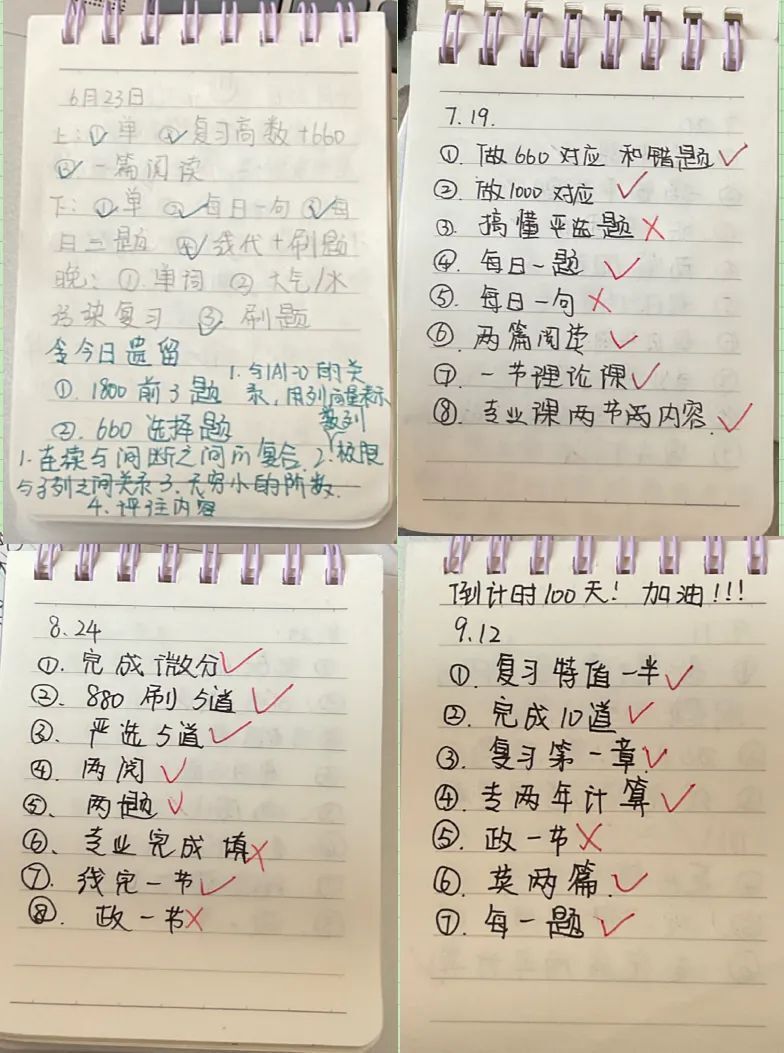 6月23日
上：① 单 ② 复习高数+660
③ 一篇阅读
下：① 单 ② 每日一句 ③ 每
日三题 ④ 线代+刷题
晚：① 单词 ② 大气/水
污染复习 ③ 刷题
今日遗留
① 1800前3题
1. 与|A|=0的关
系，用列向量表示
②. 660 选择题
数列
1. 连续与间断之间的复合. 2. 极限
与子列之间关系 3. 无穷小的阶数.
4. 评注内容
7.19.
①. 做660对应 和错题✓
②. 做1000对应 ✓
③. 搞懂严选题 ×
④. 每日一题 ✓
⑤. 每日一句 ×
⑥. 两篇阅读 ✓
⑦. 一节理论课 ✓
⑧. 专业课两节两内容. ✓
8.24
①. 完成微分✓
②. 880刷5道 ✓
③. 严选5道 ✓
④. 两阅 ✓
⑤. 两题 ✓
⑥. 专业完成 填×
⑦. 线完一节 ✓
⑧. 政一节×
倒计时100天！ 加油!!!
9.12
①. 复习特值一半✓
②. 完成10道 ✓
③. 复习第一章✓
④. 专两年计算 ✓
⑤. 政一节 ×
⑥. 英两篇. ✓
⑦. 每一题 ✓